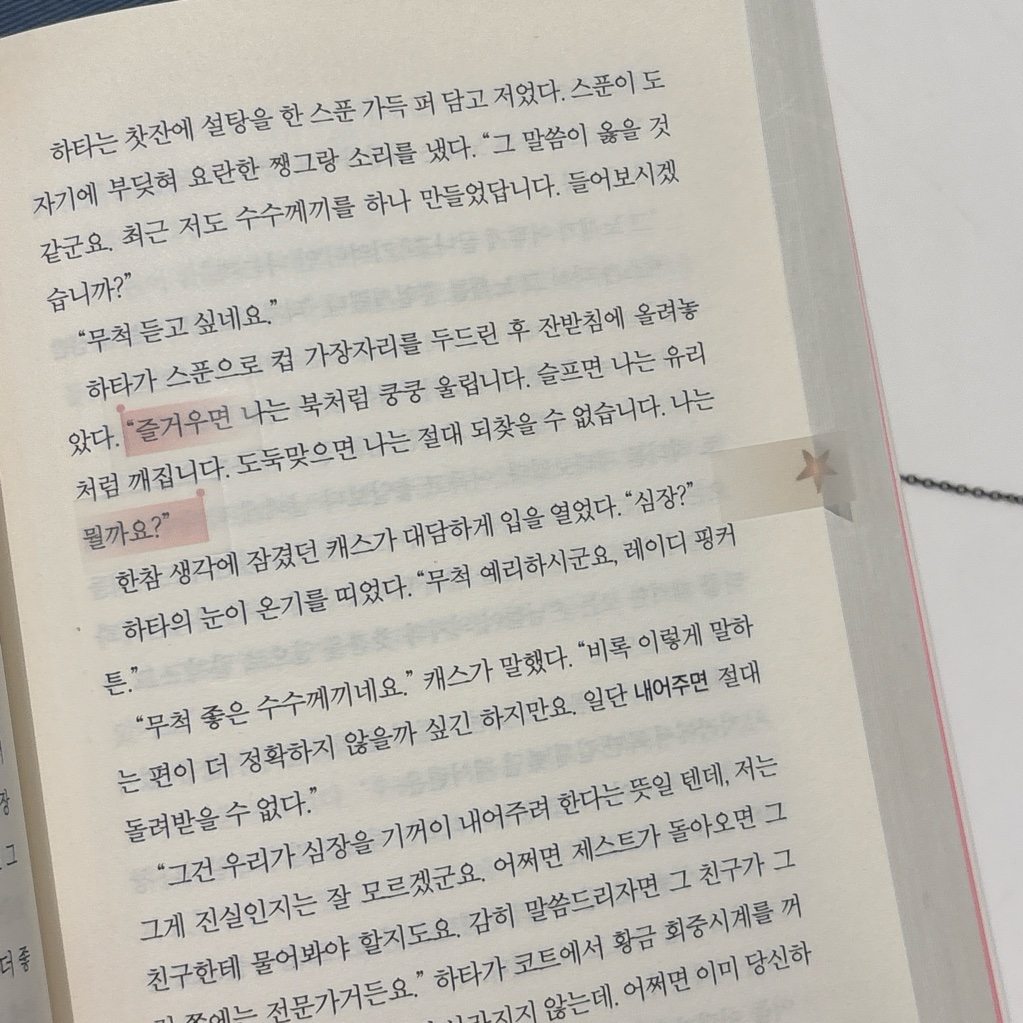 하타는 찻잔에 설탕을 한 스푼 가득 퍼 담고 저었다. 스푼이 도
자기에 부딪혀 요란한 쨍그랑 소리를 냈다. “그 말씀이 옳을 것
같군요. 최근 저도 수수께끼를 하나 만들었답니다. 들어보시겠
습니까?”
“무척 듣고 싶네요.”
하타가 스푼으로 컵 가장자리를 두드린 후 잔받침에 올려놓
았다. “즐거우면 나는 북처럼 쿵쿵 울립니다. 슬프면 나는 유리
처럼 깨집니다. 도둑맞으면 나는 절대 되찾을 수 없습니다. 나는
뭘까요?”
한참 생각에 잠겼던 캐스가 대담하게 입을 열었다. “심장?”
하타의 눈이 온기를 띠었다. “무척 예리하시군요, 레이디 핑커
튼.”
“무척 좋은 수수께끼네요.” 캐스가 말했다. “비록 이렇게 말하
는 편이 더 정확하지 않을까 싶긴 하지만요. 일단 내어주면 절대
돌려받을 수 없다.”
“그건 우리가 심장을 기꺼이 내어주려 한다는 뜻일 텐데, 저는
그게 진실인지는 잘 모르겠군요. 어쩌면 제스트가 돌아오면 그
친구한테 물어봐야 할지도요. 감히 말씀드리자면 그 친구가 그
쪽에는 전문가거든요.” 하타가 코트에서 황금 회중시계를 꺼
않는데. 어쩌면 이미 당신하
장
그
더 좋